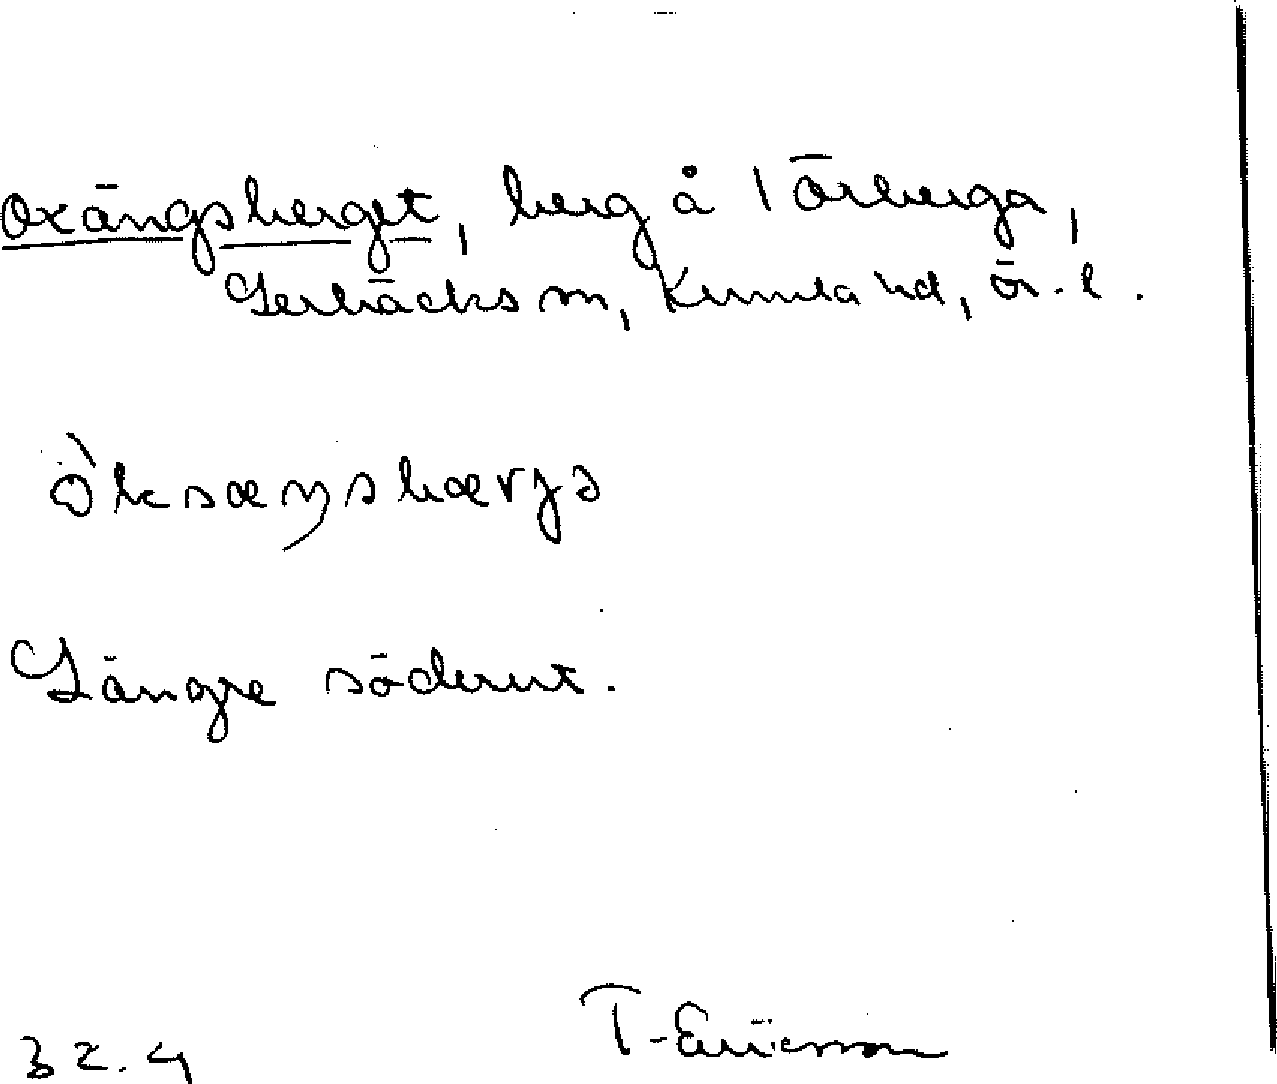 Oxängsberget, berg å 1 Örberga,
Lerbäcks sn, Kumla hd, Ör. l.
òksæŋsbærjə
Längre söderut.
32.4 T. Ericsson